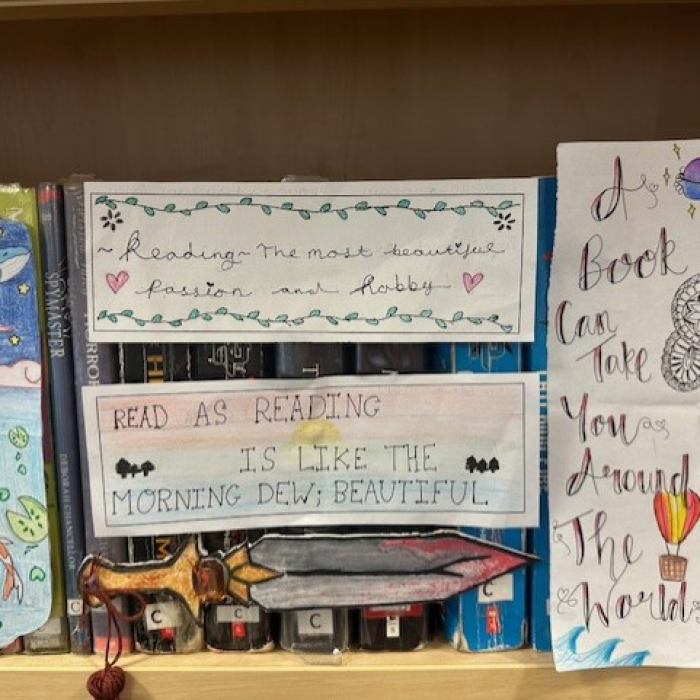 ~ Reading ~ The most beautiful
passion and hobby
READ AS READING
IS LIKE THE
MORNING DEW; BEAUTIFUL
A
Book
Can
Take
You
Around
The
World
SPYMASTER
DEBORAH CHANCELLOR
C
C
C
C
C